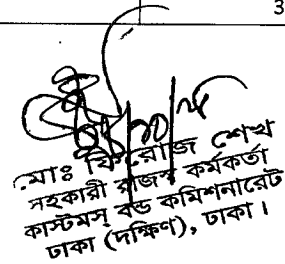 3
মোঃ ফিরোজ শেখ
সহকারী রাজস্ব কর্মকর্তা
কাস্টমস্ বন্ড কমিশনারেট
ঢাকা (দক্ষিণ), ঢাকা।